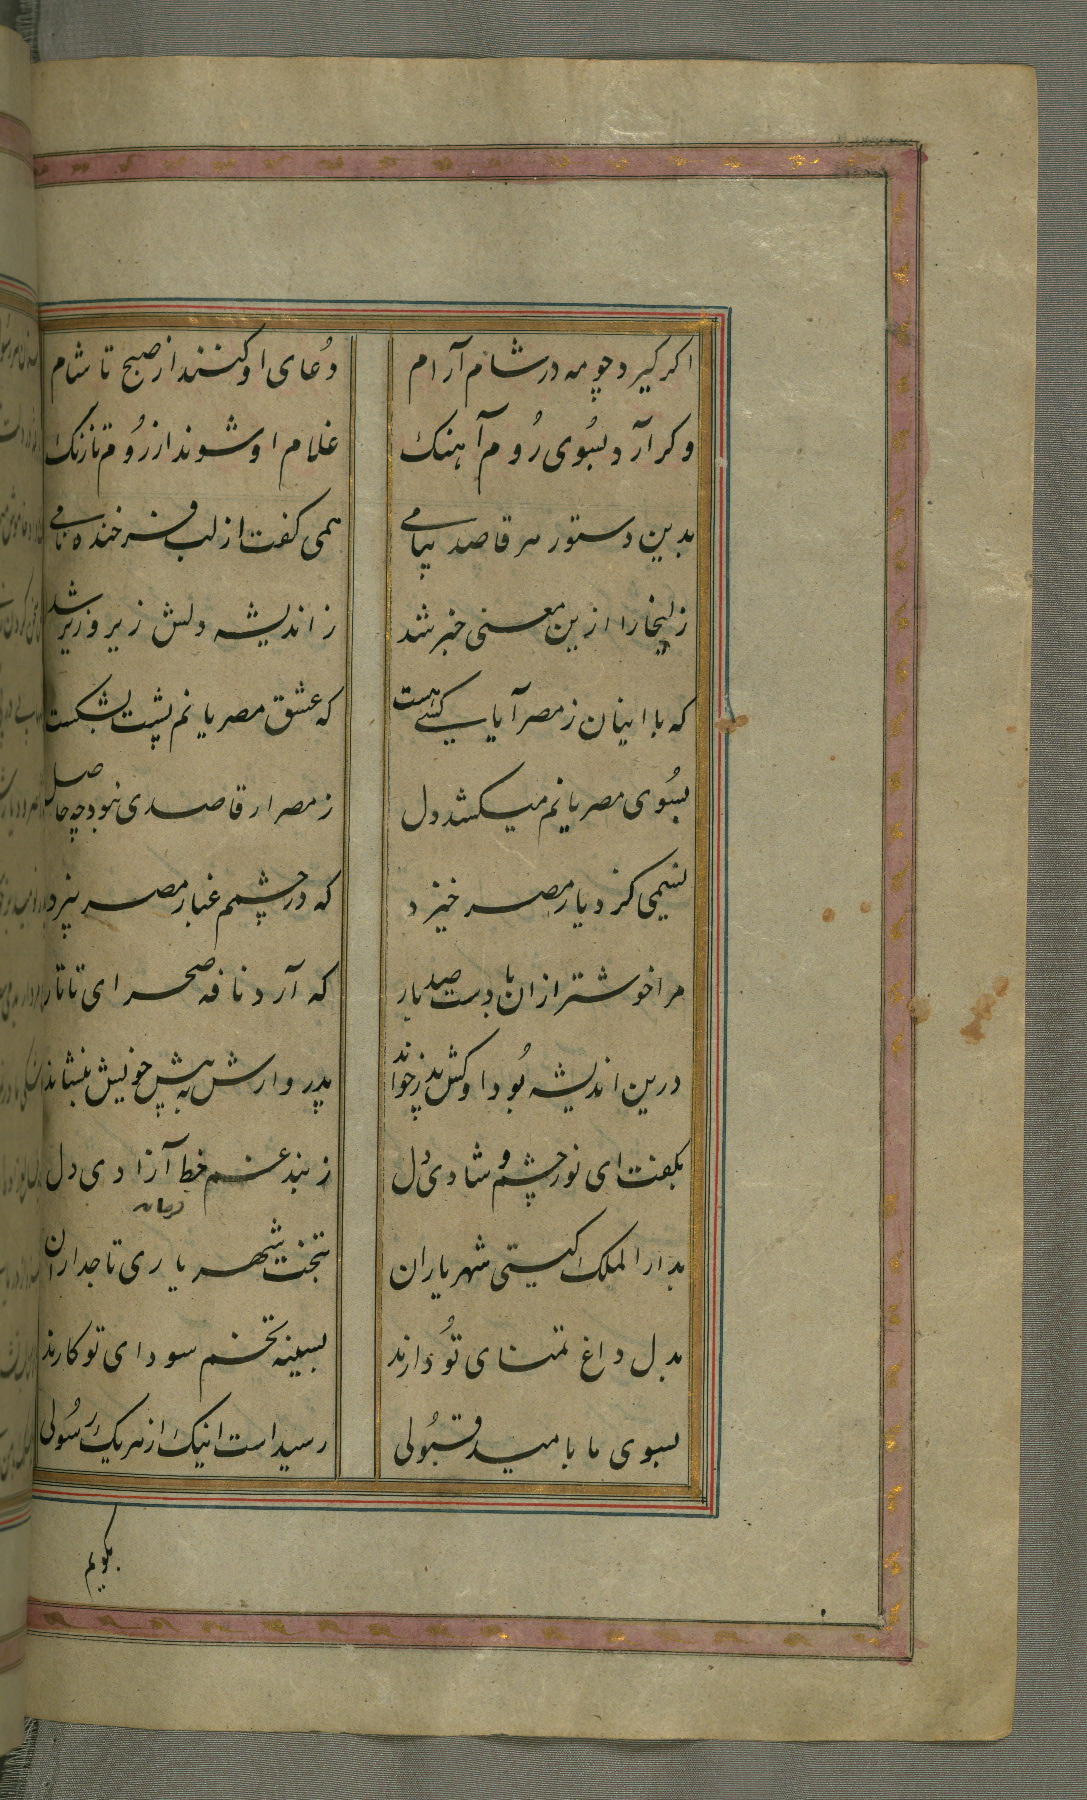 اکر کیرد چو مه در شام آرام دُعای او کنند از صبح تا شام
وکر آرد بسُوی رُوم آهنک غلام او شوند از رُوم تا زنک
بدین دستور هر قاصد پیامی همی کفت از لب فرخنده نامی
زلیخا را ازین معنی خبر شد ز اندیشه دلش زیر و زبر شد
که با اینان ز مصر آیا کسی هست که عشق مصریانم پشت بشکست
بسُوی مصریانم میکشد دل ز مصر ار قاصدی نبود چه حاصل
نسیمی کز دیار مصر خیزد که در چشمم غبار مصر بیزد
مرا خوشتر از ان باد ست صد بار که آرد نافه صحرای تاتار
درین اندیشه بُود او کش پدر خواند پدروارش به پیش خویش بنشاند
بکفت ای نور چشم و شادی دل ز بند غم خط آزادی دل
بدار الملک کیتی شهریاران بتخت شهریاری تاجداران
بدل داغ تمنای تُو دارند بسینه تخم سودای تو کارند
بسوی ما بامید قبُولی رسید است اینک از هر یک رسُولی
بکویم